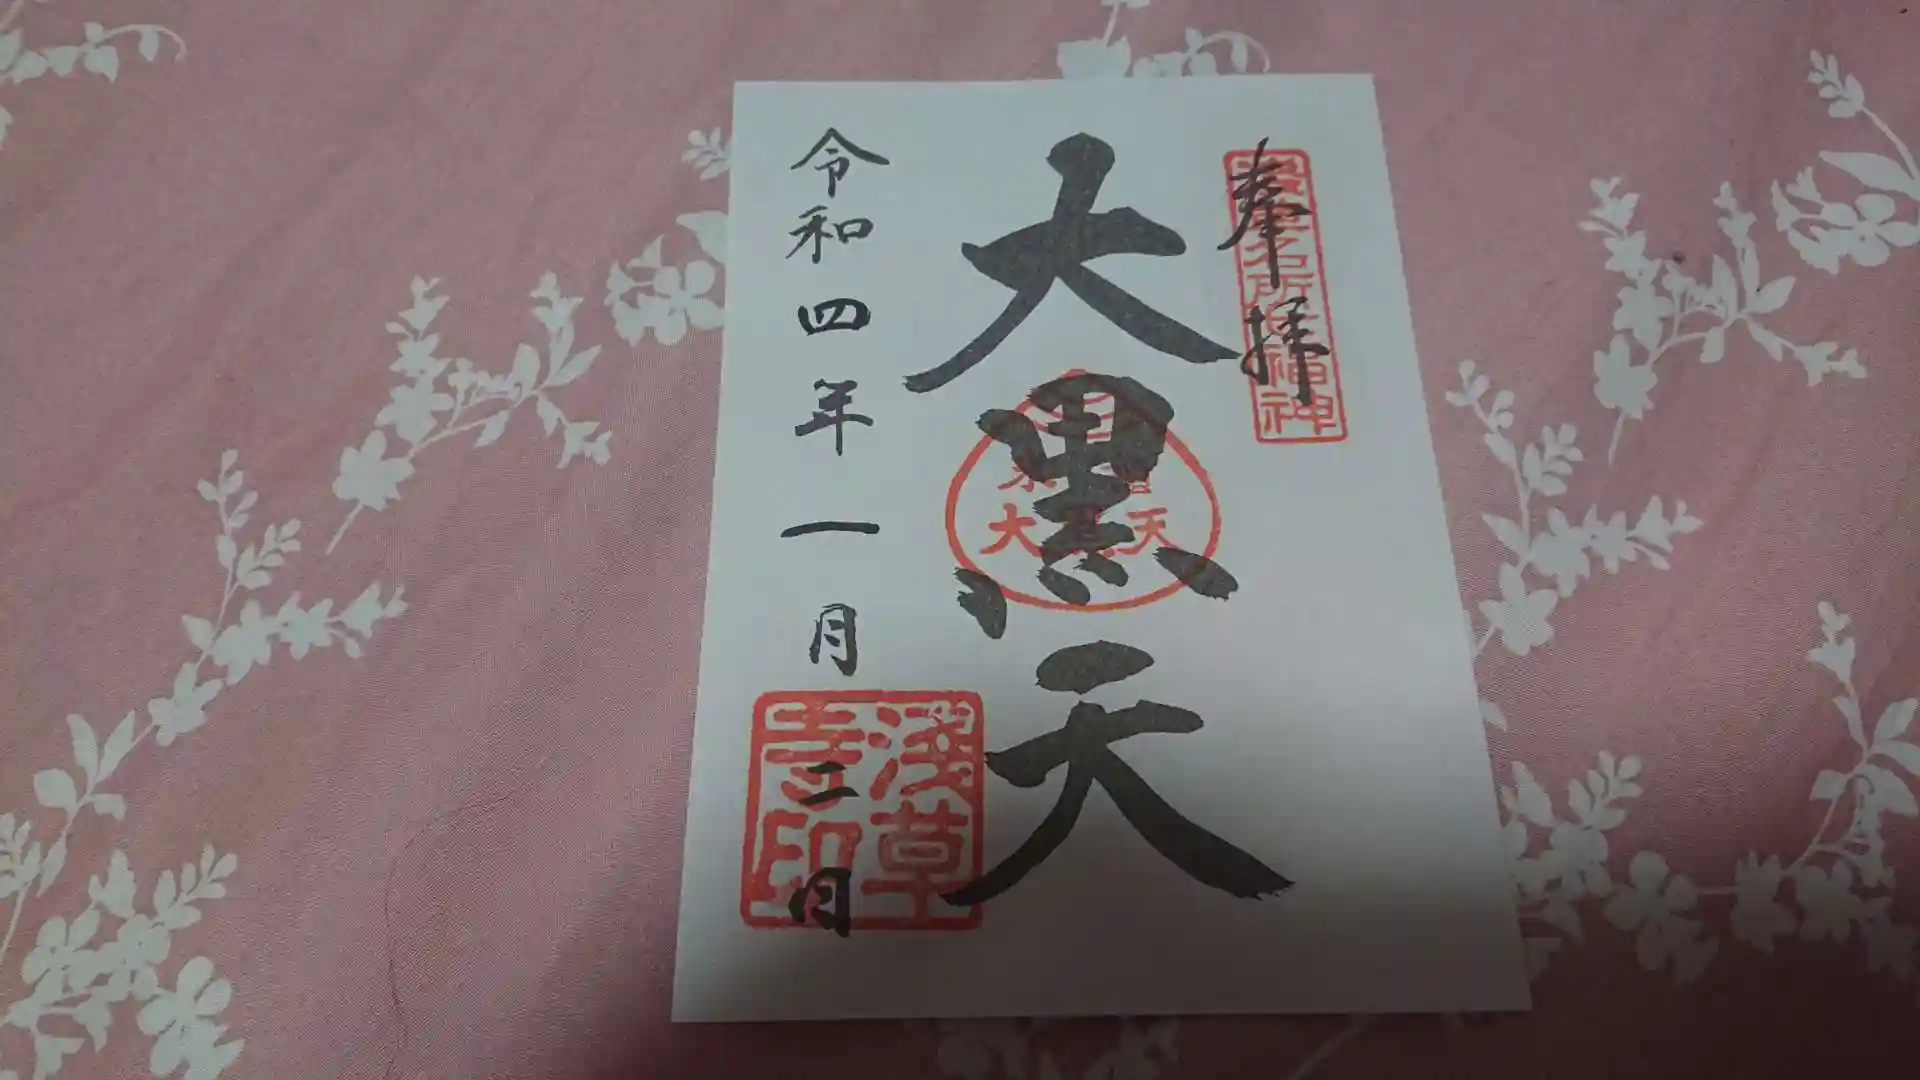 奉拝
浅草名所七福神
大黒天
大黒天
令和四年一月二日
淺草
寺印